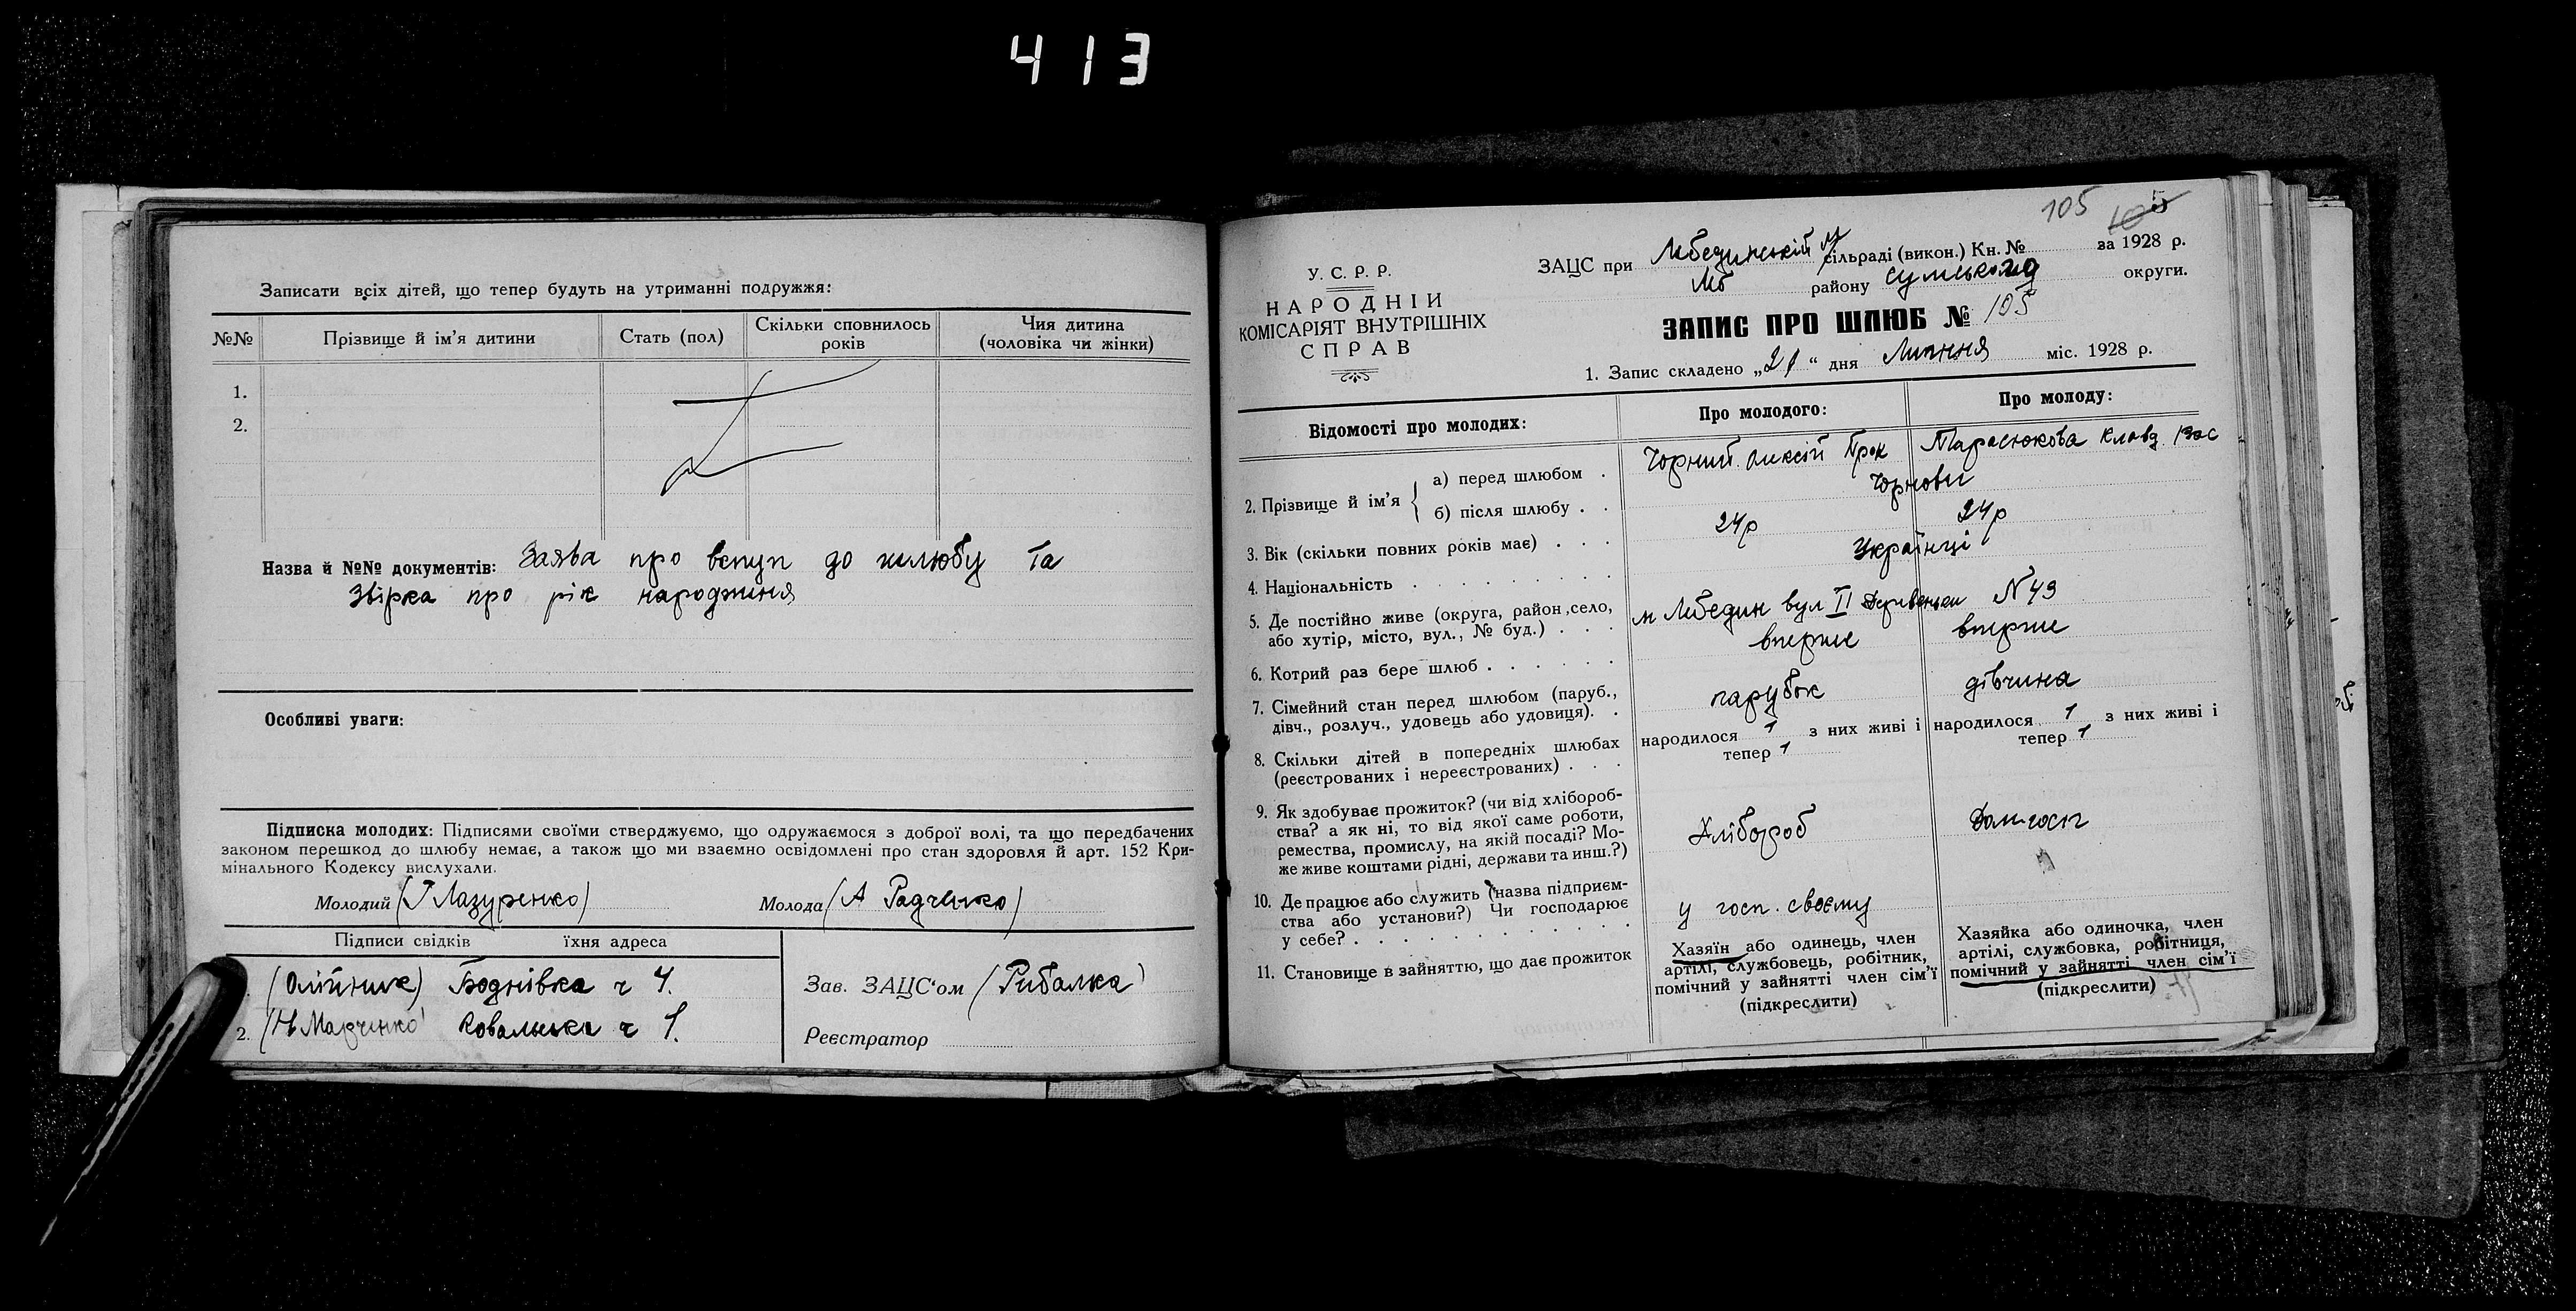 413
Записати всіх дітей, що тепер будуть на утриманні подружжя:
№№ Прізвище й ім'я дитини Стать (пол) Скільки сповнилось років Чия дитина (чоловіка чи жінки)
1.
2.
Назва й №№ документів: Заява про вступ до шлюбу та
Звірка про рік народження
Особливі уваги:
Підписка молодих: Підписями своїми стверджуємо, що одружаємося з доброї волі, та що передбачених
законом перешкод до шлюбу немає, а також що ми взаємно освідомлені про стан здоровля й арт. 152 Кри-
мінального Кодексу вислухали.
Молодий (Г Лазуренко) Молода (А Радченко)
Підписи свідків їхня адреса
(Олійник) Боднівка ч 4.
2. (Н Марченко) Ковальська ч 1.
Зав. ЗАЦС'ом (Рибалка)
Реєстратор
105
У. С. Р. Р.
НАРОДНІЙ
КОМІСАРІЯТ ВНУТРІШНІХ
СПРАВ
ЗАЦС при Лебединській м сільраді (викон.) Кн. № за 1928 р.
Леб району Сумського округи.
ЗАПИС ПРО ШЛЮБ № 105
1. Запис складено „21“ дня Липня міс. 1928 р.
Відомості про молодих: Про молодого: Про молоду:
2. Прізвище й ім'я
а) перед шлюбом . Чорний Олексій Прок Тарасюкова Клавд Вас
б) після шлюбу . . Чорнови
3. Вік (скільки повних років має) . . . 24р 24р
4. Національність . . . . . . . . . . Українці
5. Де постійно живе (округа, район, село,
або хутір, місто, вул., № буд.) . . . м Лебедин вул II N 49
6. Котрий раз бере шлюб . . . . . . вперше вперше
7. Сімейний стан перед шлюбом (паруб.,
дівч., розлуч., удовець або удовиця). . парубок дівчина
8. Скільки дітей в попередніх шлюбах
(реєстрованих і нереєстрованих) . . .
народилося 1 з них живі і
тепер 1
народилося 1 з них живі і
тепер 1
9. Як здобуває прожиток? (чи від хлібороб-
ства? а як ні, то від якої саме роботи,
ремества, промислу, на якій посаді? Мо-
же живе коштами рідні, держави та инш.?)
Хлібороб Дом-госп
10. Де працює або служить (назва підприєм-
ства або установи?) Чи господарює
у себе? . . . . . . . . . . . .
у госп. своєму
11. Становище в зайняттю, що дає прожиток
Хазяїн або одинець, член
артілі, службовець, робітник,
помічний у зайнятті член сім'ї
(підкреслити)
Хазяйка або одиночка, член
артілі, службовка, робітниця,
помічний у зайнятті член сім'ї
(підкреслити)